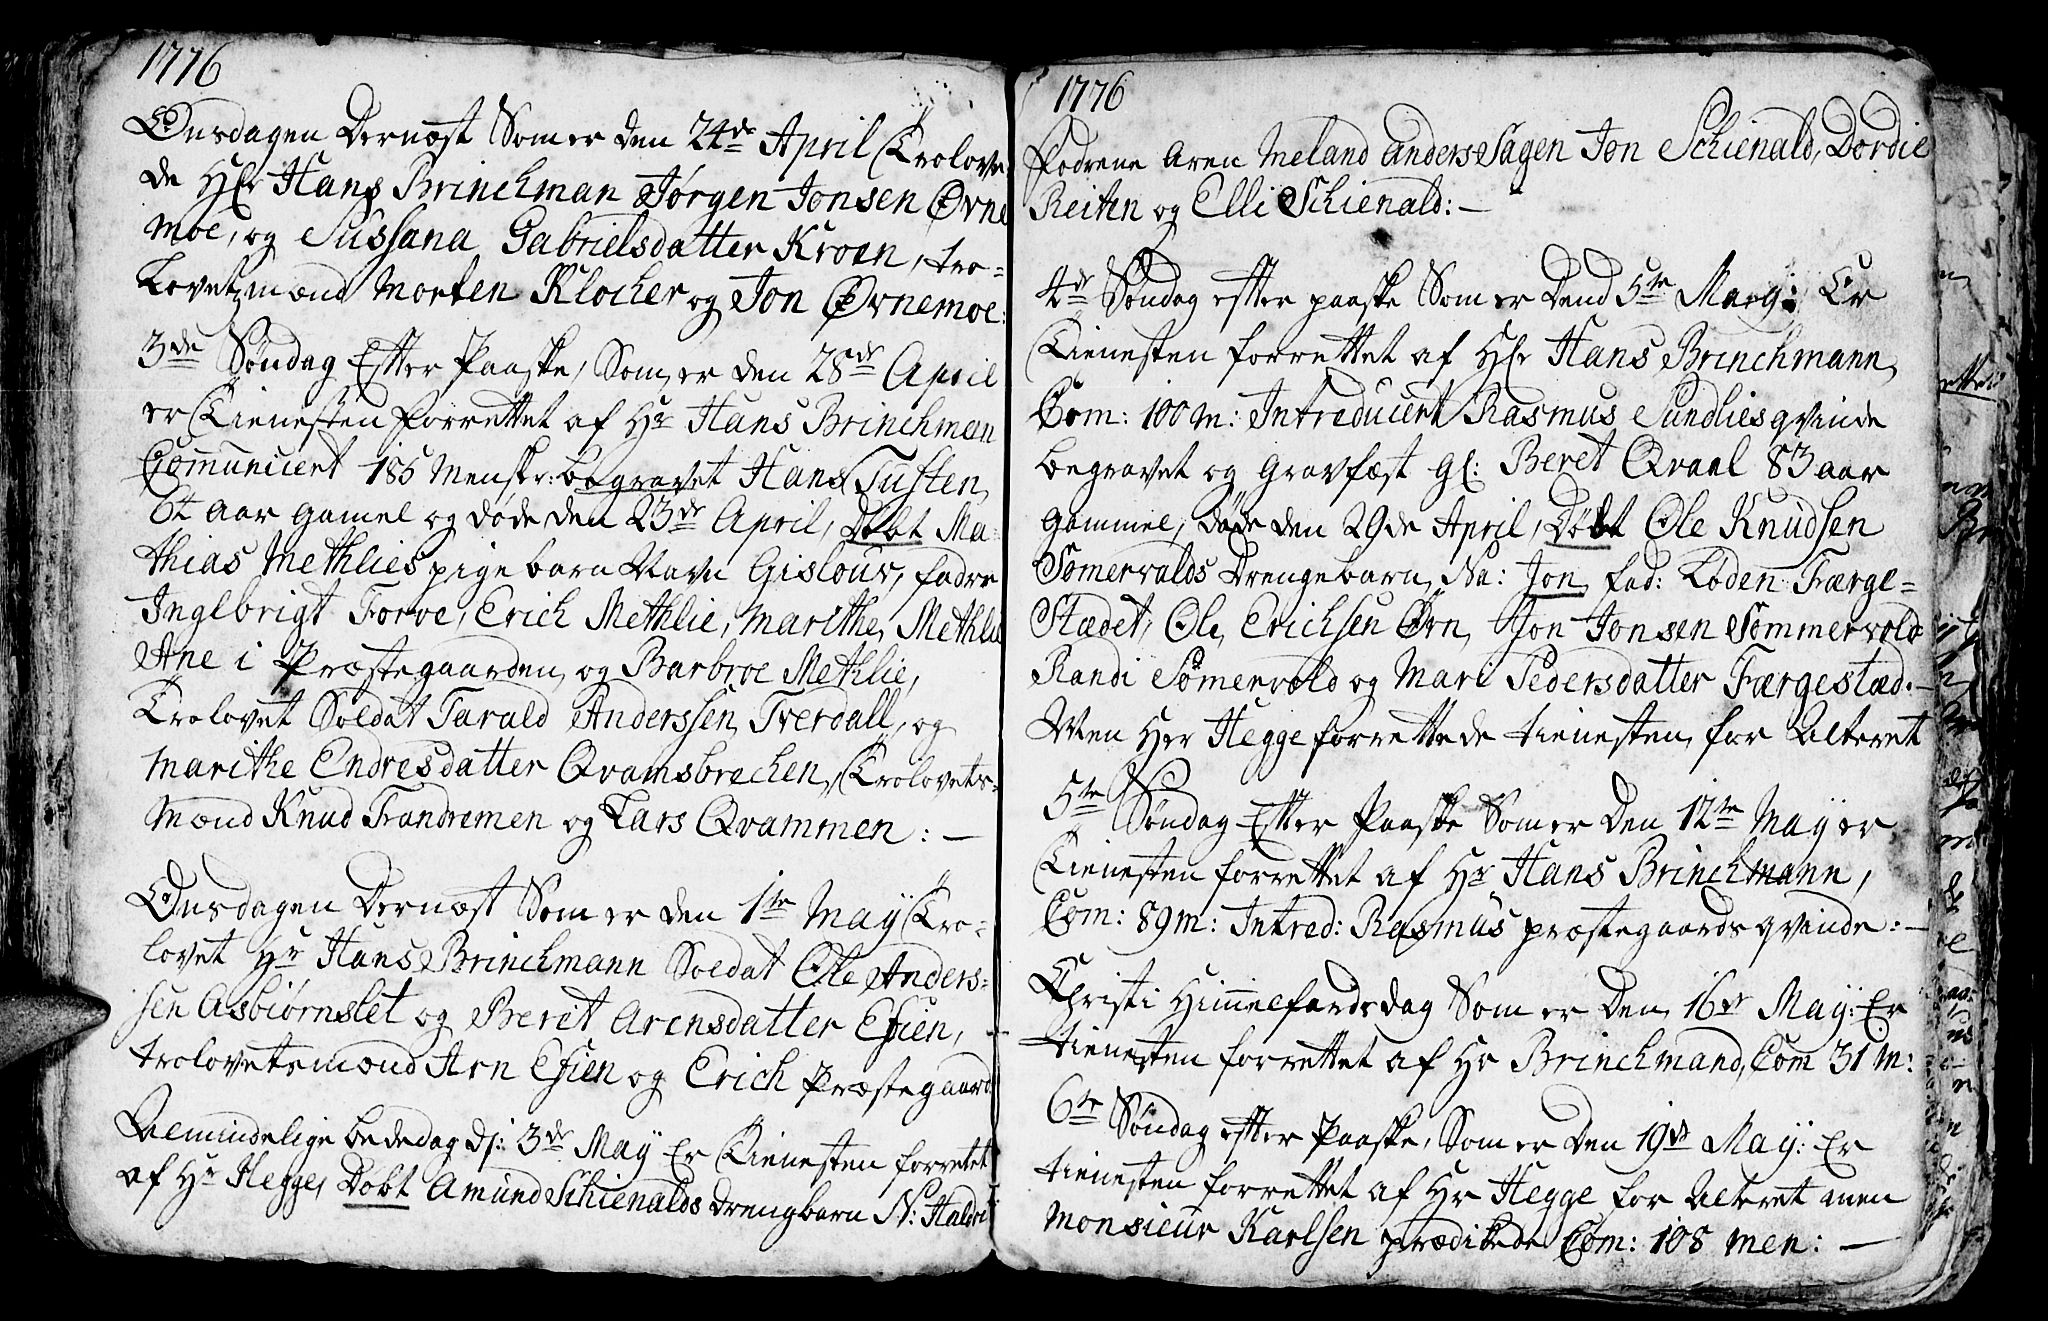 1776
Onsdagen Dernæst Som er den 24de April Trolove
de Hr Hans Brinchman Jørgen Jonsen Ørne
moe, og Sussana Gabrielsdatter Kroen, tro-
Lovetzmænd Morten Klocker og Jon Ørnemoe:
3de Søndag Efter Paaske, Som er den 28de April
er Tienesten forrettet af Hr Hans Brinchman
Comunicert 185 Menskr: begravet Hans Tuften
aar gamel og døde den 23de April, Døbt Ma-
thias Methlies pige barn Navn Gislour, fadre
Ingebrigt Forve, Erich Methlie, Marithe Methlie
Ane i Præstegaarden og Barbroe Methlie,
Trolovet Soldat Tarald Anderssen Tverdall, og
Marithe Endresdatter Qvamsbrechen, Trolovets-
Mænd Knud Trandremen og Lars Qvammen: —
Onsdagen Dernæst Som er den 1te May Tro-
lovet Hr Hans Brinchmann Soldat Ole Anders-
sen Asbiørnslet og Beret Arensdatter Efien,
trolovetsmænd Arn Efien og Erich Præstegaard
Alemindelige bededag d: 3de May Er Tienesten forretet
af Hr Hegge, Døbt Amund Schienalds drengbarn N: Haldo
1776
Fodrene Aren Meland Anders Sagen Jon Schienald, Dordie
Reiten og Elli Schienald: —
4de Søndag efter paaske Som er Dend 5te May: Er
Tienesten forrettet af Hr Hans Brinchmann,
Com: 100 M: Introducert Rasmus Sundlies qvinde
begravet og Gravfæst gl: Beret Qvaal 83 aar
gammel, døde den 29de April, Døbt Ole Knudsen
Sømervalds Drengebarn Na: Jon, fad: Løden Færge-
Stædet, Ole Erichsen Ørn, Jon Jonsen Sommervold
Randi Sømervold og Mari Pedersdatter Færgestæd. —
Men Her Hegge forrettede tienesten for Alteret
5te Søndag Efter Paaske Som er Den 12te May er
Tienesten forrettet af Hr Hans Brinchmann,
Com: 89 M: Intred: Rasmus præstegaards qvinde: —
Christi Himmelfardsdag Som er Den 16de May: Er
tienesten forrettet af Hr Brinchmand, Com 31 M:
6te Søndag efter Paaske, Som er Den 19de May: Er
tienesten forrettet af Hr Hegge for Alteret men
Monsieur Karlsen prædikede Com: 108 men: —